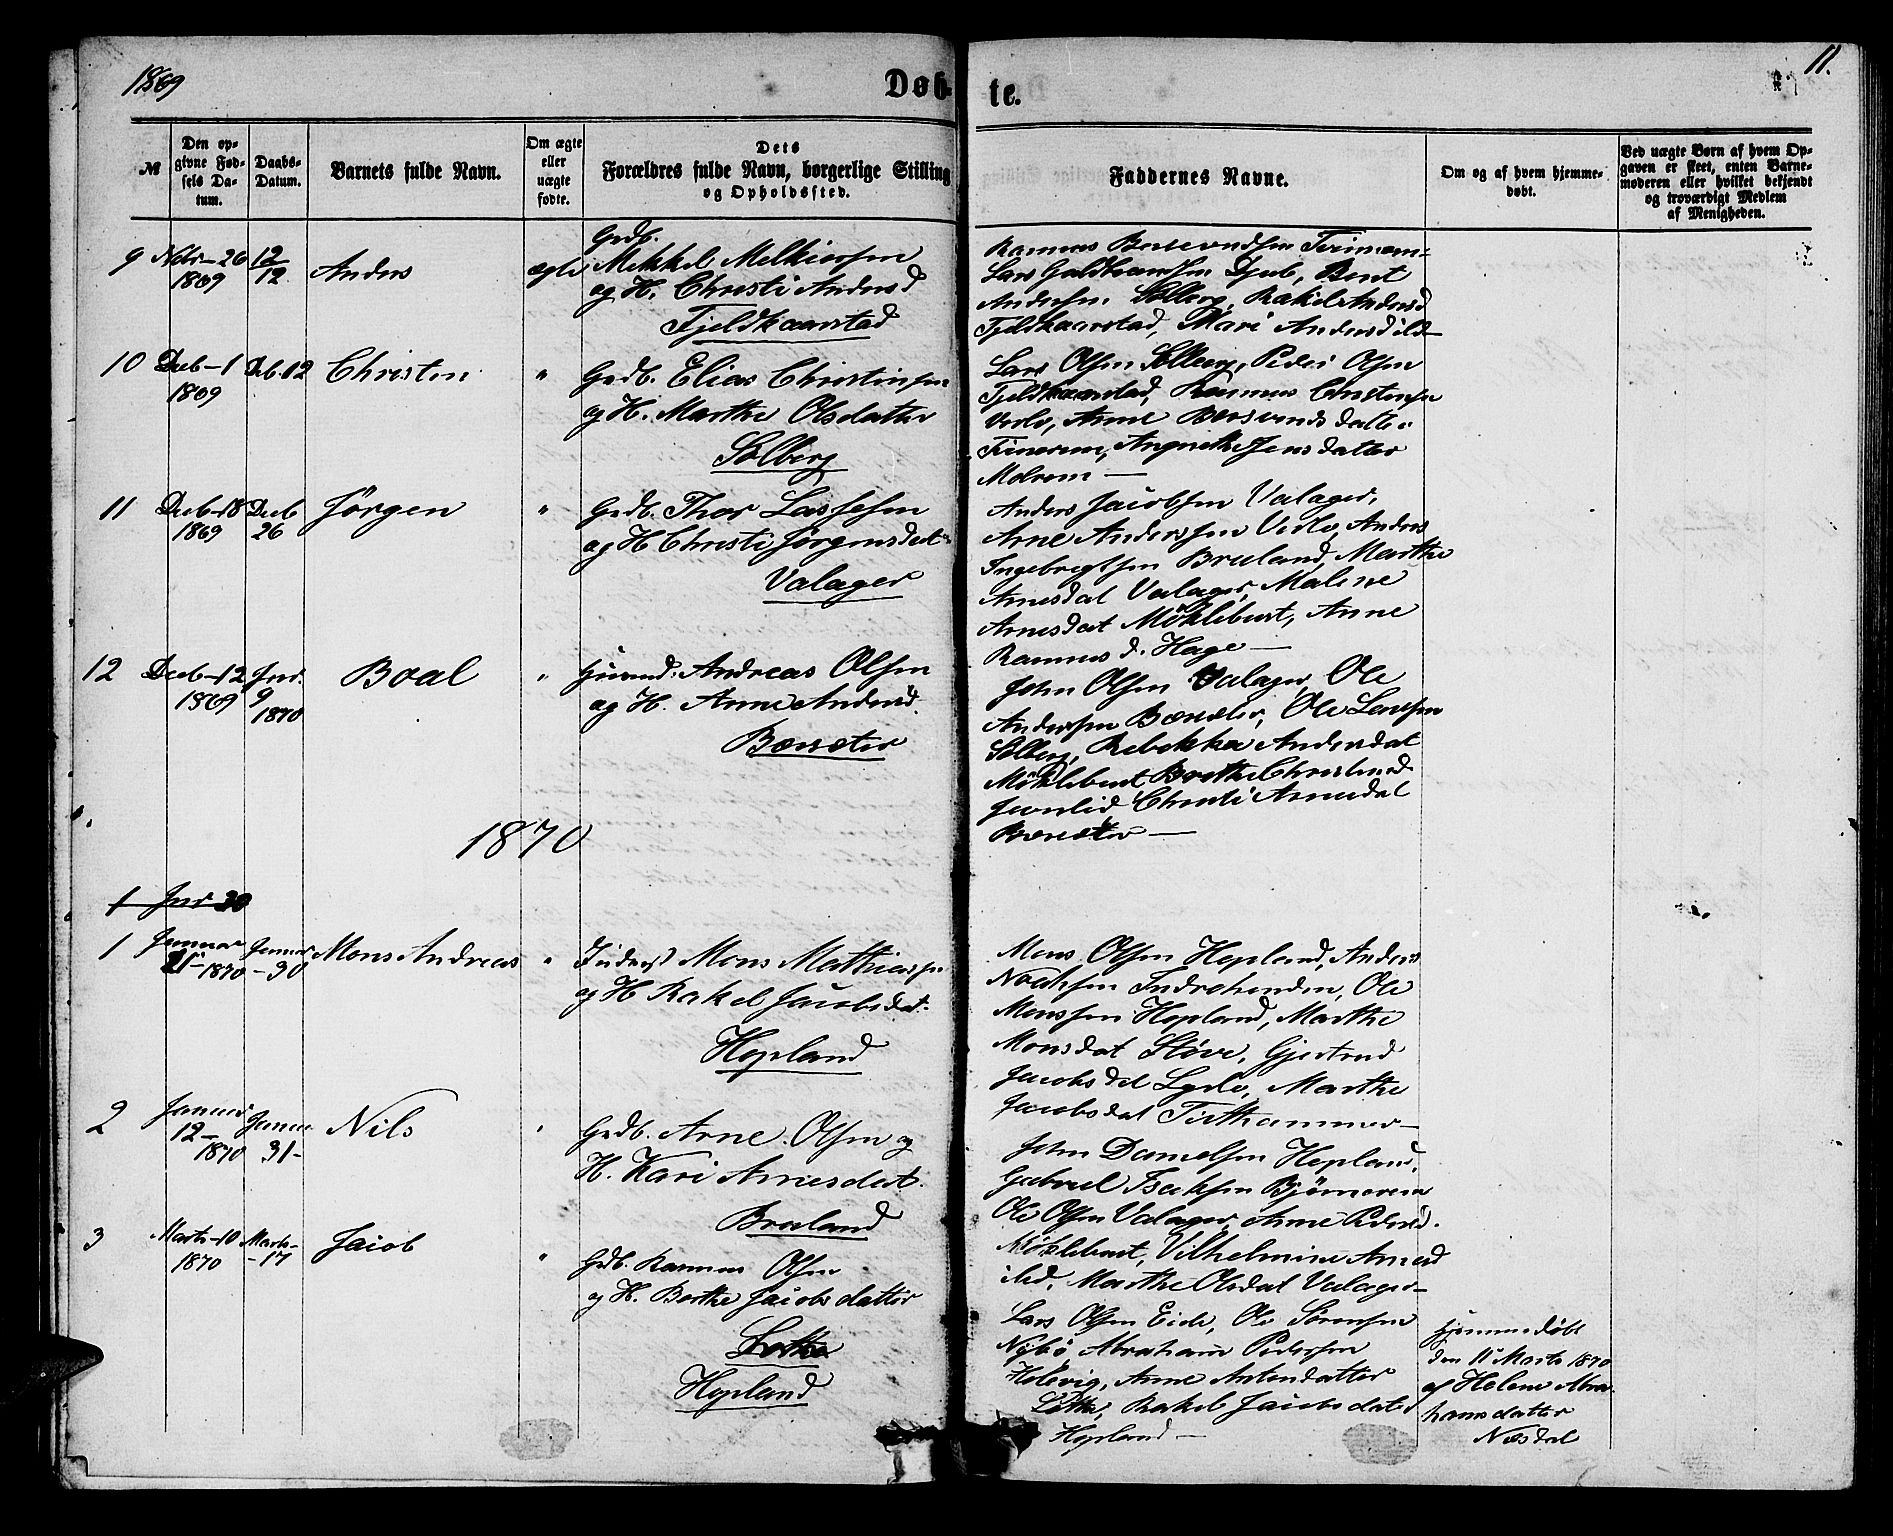 1869
Døb-
te.
11.
№
Den op-
givne Fød-
sels Da-
tum.
Daabs-
Datum.
Barnets fulde Navn.
Om ægte
eller
uægte
fødte.
Dets
Forældres fulde Navn, borgerlige Stilling
og Opholdssted.
Faddernes Navne.
Om og af hvem hjemme-
døbt.
Ved uægte Børn af hvem Op-
gaven er skeet, enten Barne-
moderen eller hvilket bekjendt
og troværdigt Medlem
af Menigheden.
9
Nbr-26
1869
12/12
Anders
ægte
Grdb.
Mekkel Melkiorsen
og H. Christi Andersd
Fjeldkaarstad
Lars
Djub, Bent
Andersen Solberg, Rakel Andersd
Fjeldkaarstad, Mari Andersd ibd
10
Decb-1
1869
Deb. 12
Christen
"
Grdb. Elias Christensen
og H. Marthe Olsdatter
Solberg
Lars Olsen Solberg, Peder Olsen
Fjeldkaarstad, Rasmus Christensen
Vedlø, Anne Borsvendsdatter
Angnethe Jensdatter
Molrem —
11
Decb-18
1869
Decb
26
Jørgen
"
Grdb. Thor Lassesen
og H Christi Jørgensdat
Valager
Anders Jacobsen Valager,
Arne Anderssen Vedlø, Anders
Ingebregtsen Bruland, Marthe
Arnesdat Valager, Malene
Arnesdat Møklebust, Anne
Rasmusd. Hage —
12
Decb-12
1869
Jnr.
9
1870
Boal
"
Andreas Olsen
og H. Anne Andersd.
Bænseter
John Olsen Valager, Ole
Anderssen Bænseter, Ole Larssen
Solberg, Rebekka Andersdat
Møklebust, Berthe
Christi Arnesdat
Bænseter —
1870
1 Jnr 30
1
Januar
21-1870
Januar
-30
Mons Andreas
"
Inderst Mons Mathiassen
og H Rakel Jacobsdat.
Hopland
Mons Olsen Hopland, Anders
Noahsen Indrehenden, Ole
Monssen Hopland, Marthe
Monsdat Støve, Gjertrud
Jacobsdat Marthe
Jacobsdat Tuthammer—
2
Januar
12-
1870
Januar
31-
Nils
"
Grdb. Arne Olsen og
H. Kari Arnesdat.
Bruland
John Danielsen Hopland,
Gabriel Isaksen
Ole Olsen Valager, Anne Pedersd.
Møklebust, Vilhelmine Arnesd
ibd, Marthe Olsdat Valager—
3
Marts-10
1870
Marts-
-17
Jacob
"
Grdb. Rasmus Olsen
og H. Berthe Jacobsdatter
Hopland
Lars Olsen Eide, Ole Sørensen
Nybø Abraham Pedersen
Holevig, Anne Antonsdatter
Rakel Jacobsdatter
Hopland —
hjemmedøbt
den 11te Marts 1870
af Helene Abra-
hamsdatter
Næsdal